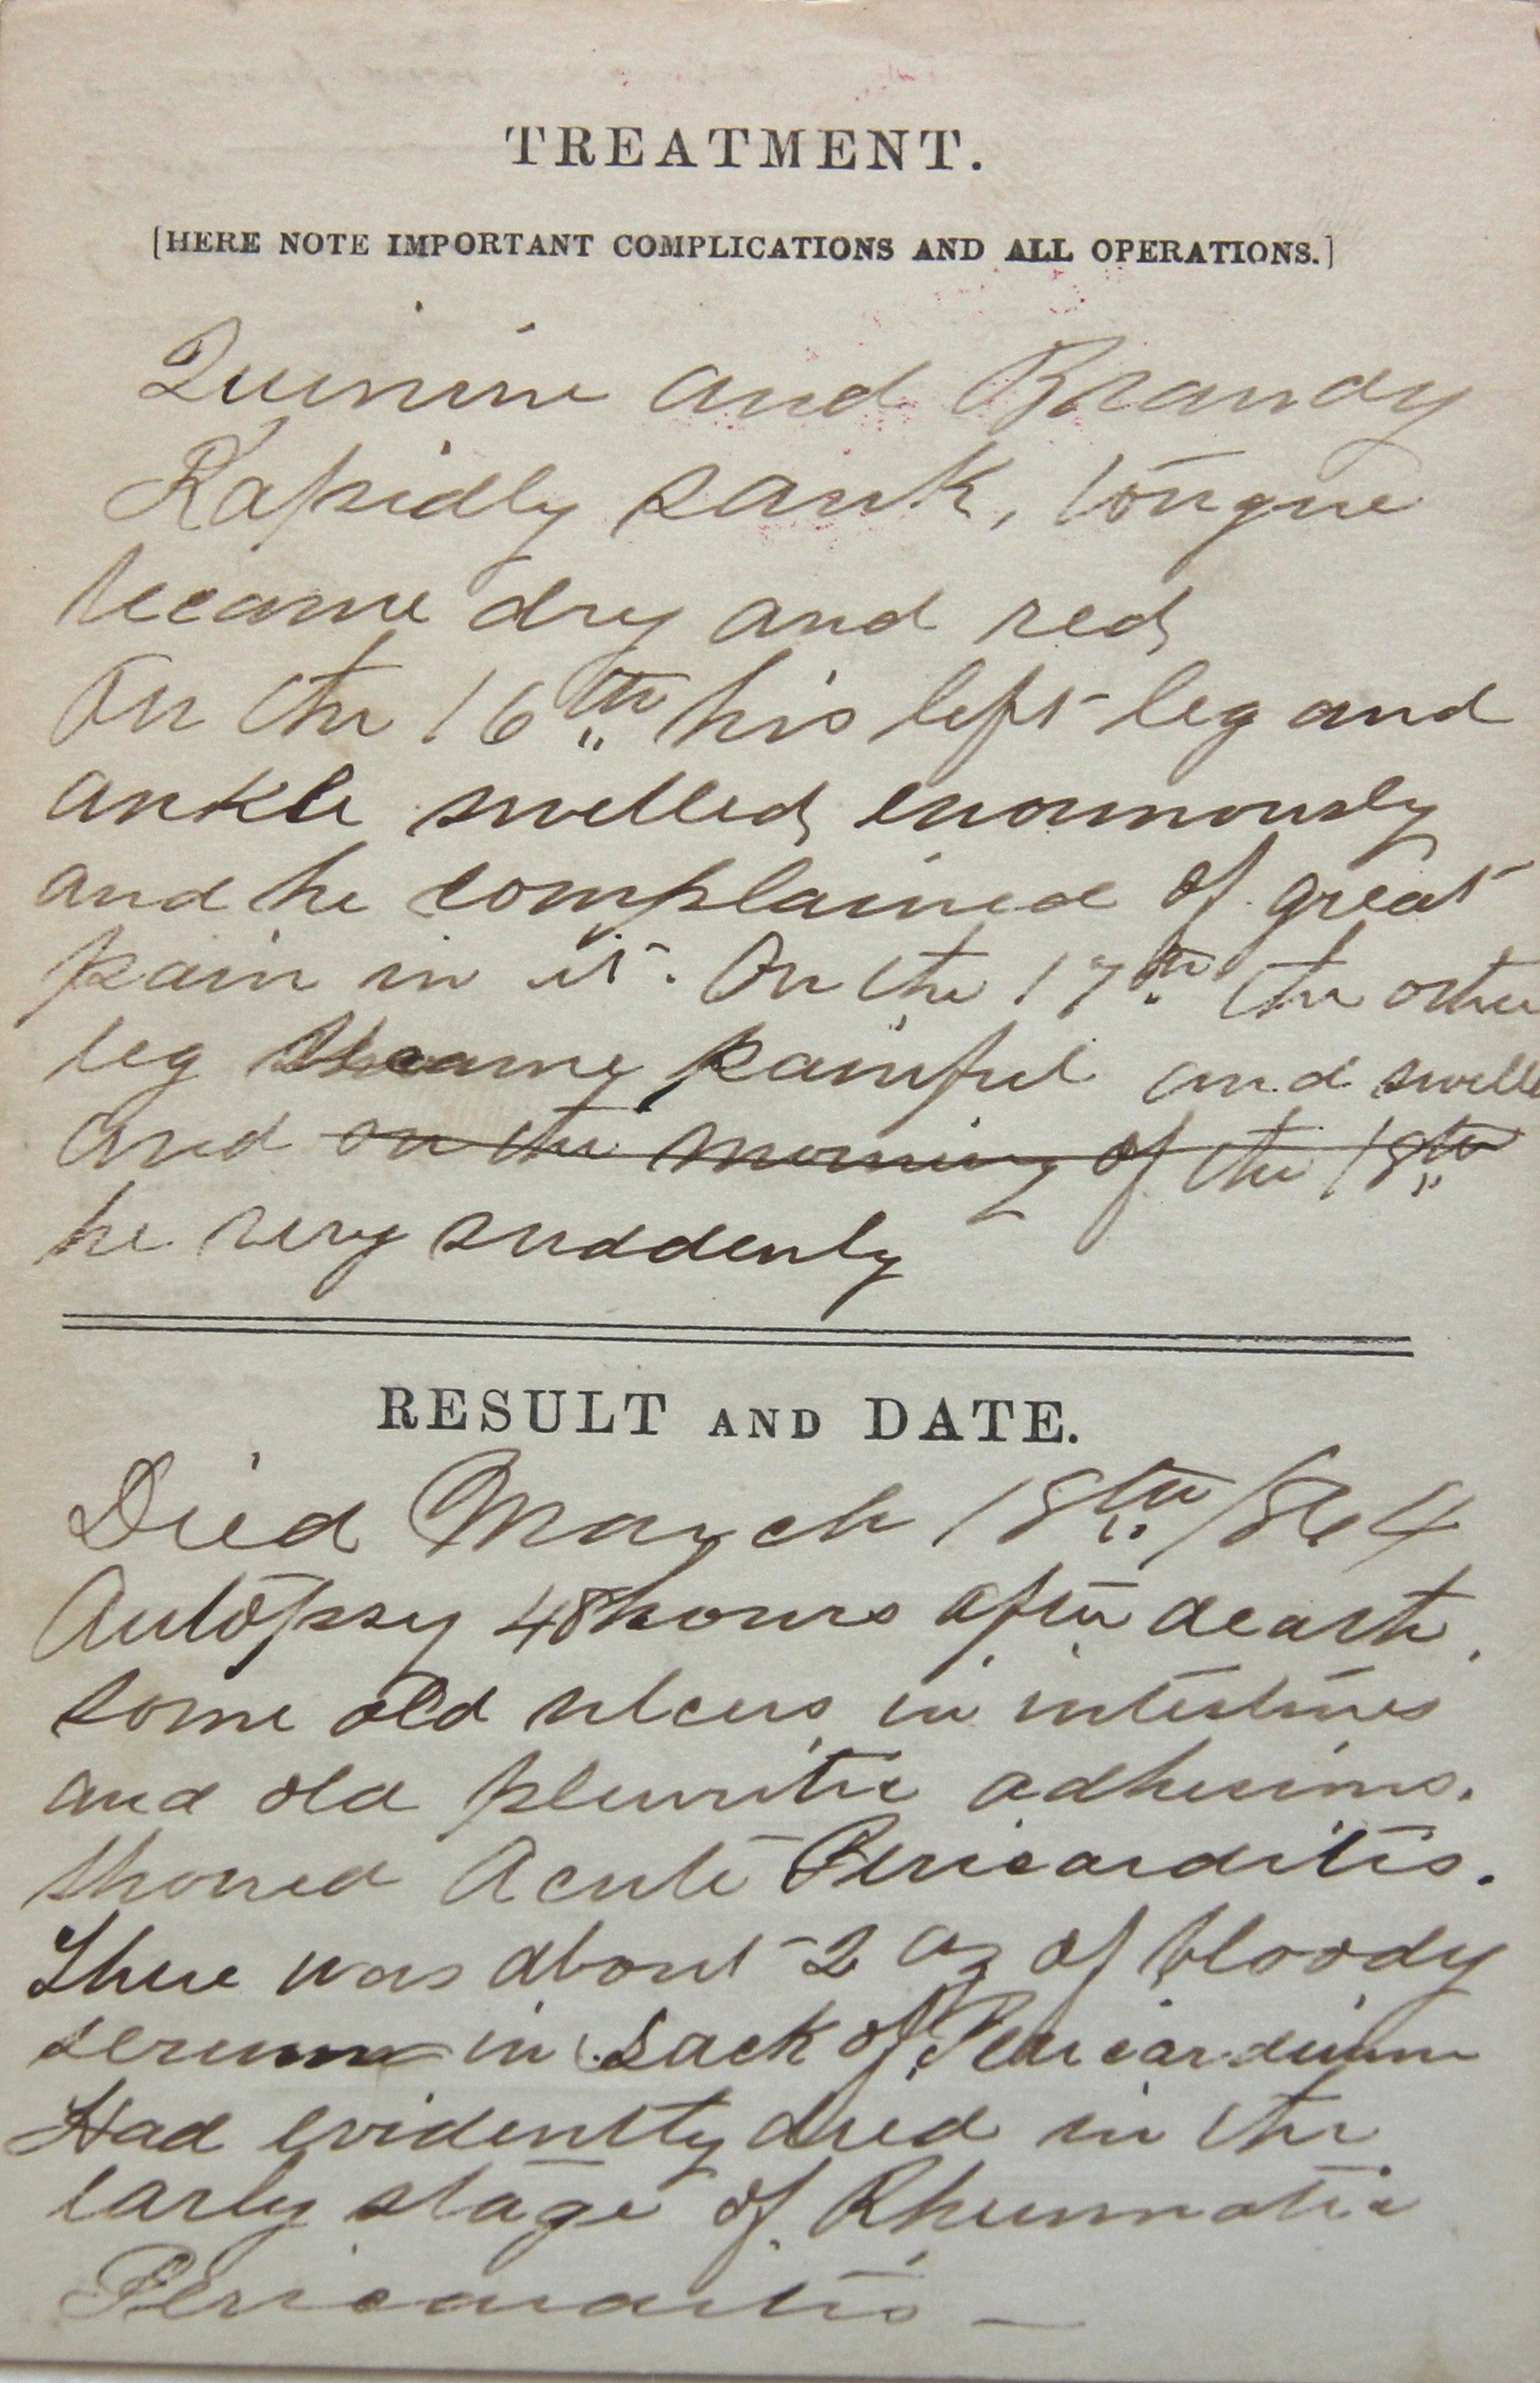 TREATMENT.
[HERE NOTE IMPORTANT COMPLICATIONS AND ALL OPERATIONS.]
Quinine and Brandy
Rapidly sank, tongue
became dry and red
On the 16th his left leg and
ankle swelled enormously
and he complained of great
pain in it. On the 17th the other
leg became painful and swelle
and on the morning of the 18th
he very suddenly
RESULT AND DATE.
Died March 18th 1864
Autopsy 48 hours after death.
some old ulcers in intestines
and old pleuritic adhesions.
showed Acute Pericarditis.
There was about 2 oz of bloody
serum in sack of Pericardium
Had evidently died in the
early stage of Rheumatic
Pericarditis —